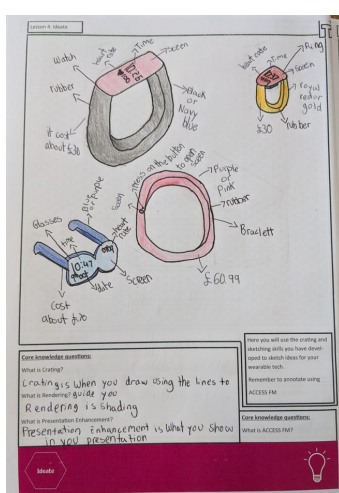 Lesson 4: Ideate
Watch
heart rate
Time
screen
rubber
Black or Navy blue
it cost about £30
heart rate
Time
Ring
screen
royal red or gold
£30
rubber
Press on the button to open screen
Purple or Pink
rubber
Braclett
Screen
£60.99
Glasses
Blue or purple
time
heart rate
10:47
date
Screen
Cost about £70
Here you will use the crating and
sketching skills you have devel-
oped to sketch ideas for your
wearable tech.
Remember to annotate using
ACCESS FM
Core knowledge questions:
What is Crating?
Crating is when you draw using the lines to
What is Rendering? guide you
Rendering is shading
What is Presentation Enhancement?
Presentation enhancement is what you show
in you presentation
Core knowledge questions:
What is ACCESS FM?
Ideate